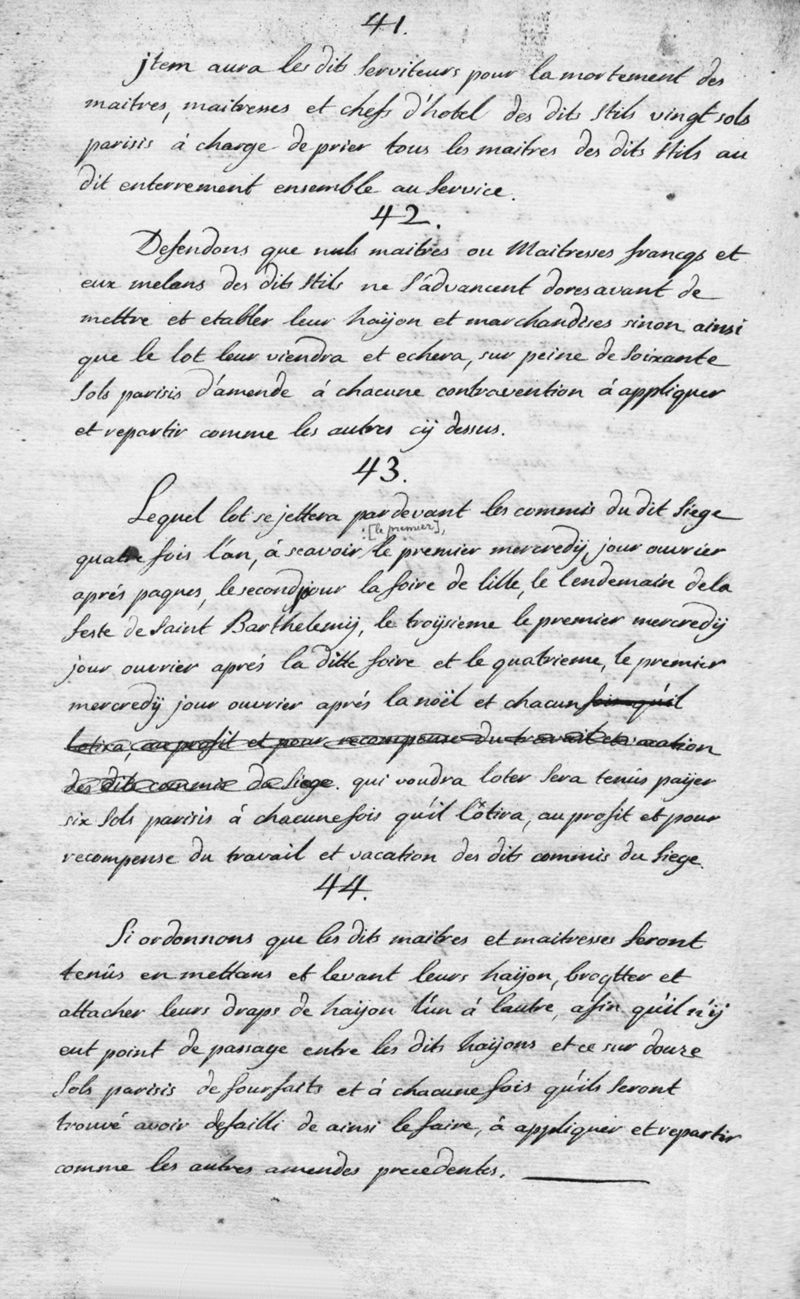 41.
jtem aura les dits Serviteurs pour la mortement des
maitres, maitresses et chefs d'hotel des dits Stils vingt sols
parisis á charge de prier tous les maitres des dits Stils au
dit enterrement ensemble au Service.
42.
Defendons que nuls maitres ou Maitresses francqs et
eux melans des dits Stils ne S'advancent doresavant de
mettre et etabler leur haijon et marchandises sinon ainsi
que le lot leur viendra et echera, sur peine de Soixante
Sols parisis d'amende á chacune contravention á appliquer
et repartir comme les autres cij dessus.
43.
Lequel lot se jettera pardevant les commis du dit Siege
[le premier],
quatre fois l'an, á scavoir le premier mercredij, jour ouvrier
aprés paques, le second jour la foire de lille, le lendemain de la
feste de Saint Barthelemij, le troÿsieme le premier mercredij
jour ouvrier aprés la ditte foire et le quatrieme, le premier
mercredij jour ouvrier aprés la noël et chacun fois qu'il
lotira, au profit et pour recompense du travail et vacation
des dits commis du Siege. qui voudra loter Sera tenûs paijer
six Sols parisis á chacune fois qu'il lôtira, au profit et pour
recompense du travail et vacation des dits commis du Siege.
44.
Si ordonnons que les dits maitres et maitresses Seront
tenûs en mettans et levant leurs haijon, brogtter et
attacher leurs draps de haijon l'un á lautre, afin qu'il n'ij
eut point de passage entre les dits haijons et ce sur douze
Sols parisis de fourfaits et á chacune fois qu'ils Seront
trouvé avoir defailli de ainsi le faire, á appliquer et repartir
comme les autres amendes precedentes.